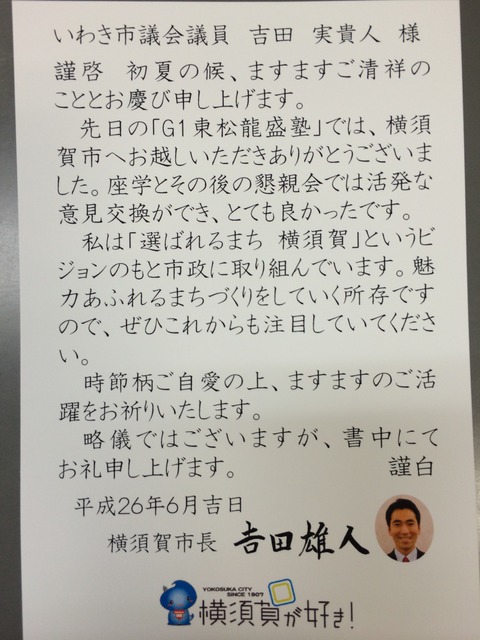 いわき市議会議員　吉田　実貴人　様
謹啓　初夏の候、ますますご清祥の
こととお慶び申し上げます。
　先日の「G1東松龍盛塾」では、横須
賀市へお越しいただきありがとうございま
した。座学とその後の懇親会では活発な
意見交換ができ、とても良かったです。
　私は「選ばれるまち　横須賀」というビ
ジョンのもと市政に取り組んでいます。魅
力あふれるまちづくりをしていく所存です
ので、ぜひこれからも注目していてくださ
い。
　時節柄ご自愛の上、ますますのご活
躍をお祈りいたします。
　略儀ではございますが、書中にて
お礼申し上げます。　　　　　　謹白
平成26年6月吉日
横須賀市長　吉田雄人
YOKOSUKA CITY
SINCE 1907
横須賀が好き！